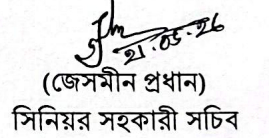 21.05.26
(জেসমীন প্রধান)
সিনিয়র সহকারী সচিব